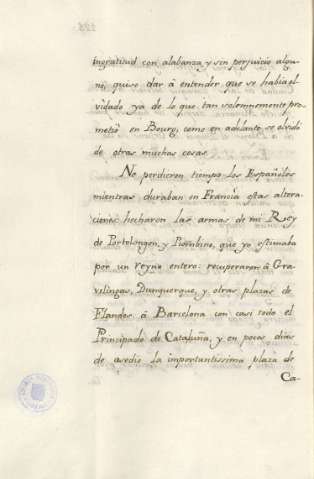 ingratitud con alabanza, y sin perjuicio algu-
no, quiso dar â entender que se habia ol-
vidado ya de lo que tan solemnemente pro-
metiò en Bourg, como en adelante se olvidò
de otras muchas cosas.
No perdieron tiempo los Españoles
mientras duraban en Francia estas altera-
ciones: hecharon las armas de mi Rey
de Portolongon, y Piombino, que yo estimaba
por un reyno entero: recuperaron â Gra-
velingas, Dunquerque, y otras plazas de
Flandes â Barcelona con casi todo el
Principado de Cataluña, y en pocos dias
de asedio la importantissima plaza de
Ca-